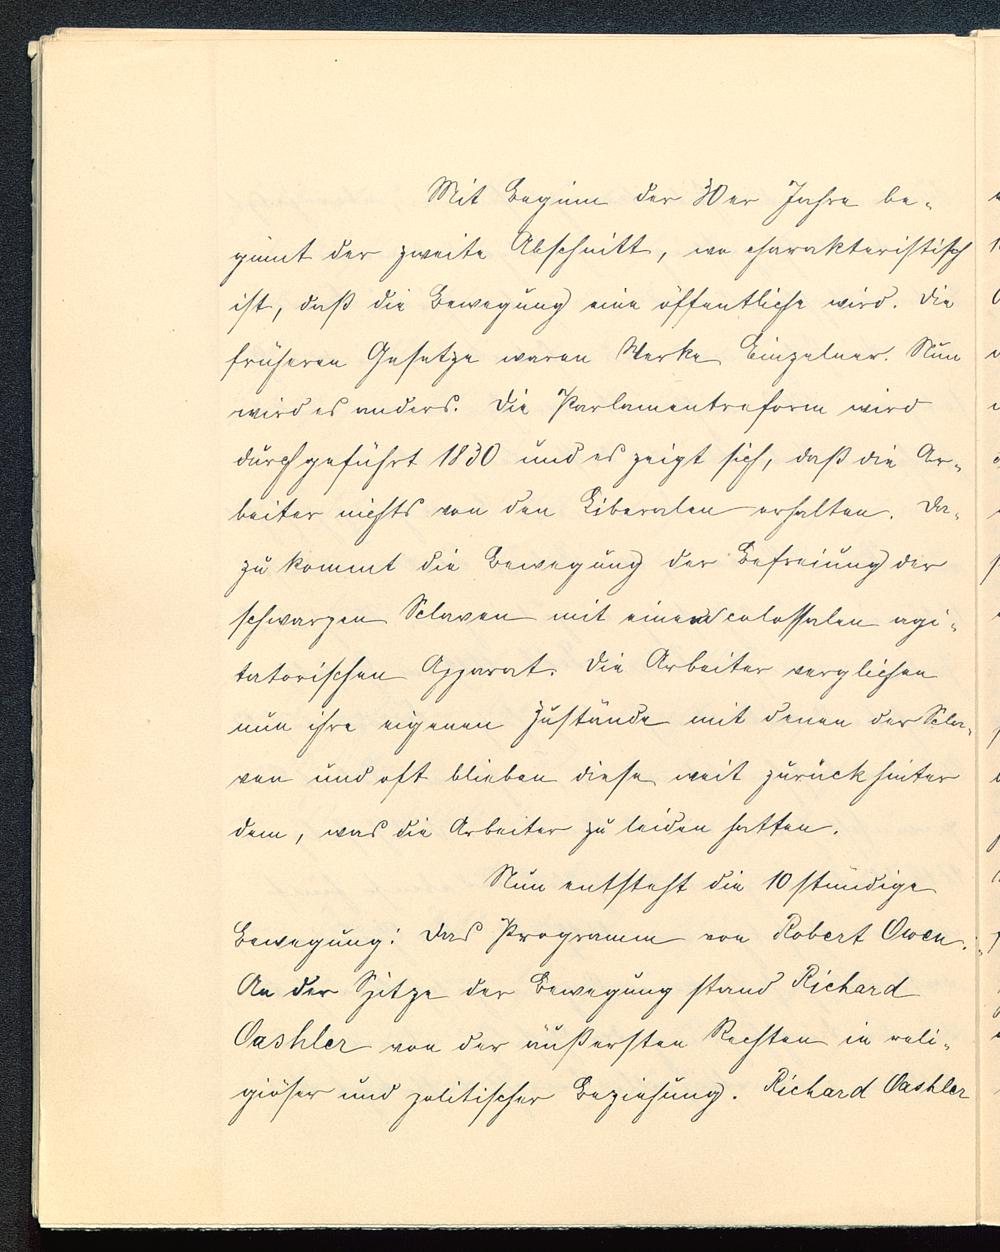 Mit Beginn der 30er Jahre be-
ginnt der zweite Abschnitt, wo charakteristisch
ist, daß die Bewegung eine öffentliche wird. Die
früheren Gesetze waren Werke Einzelner. Nun
wird es anders. Die Parlamentreform wird
durchgeführt 1830 und es zeigt sich, daß die Ar-
beiter nichts von den Liberalen erhalten. Da-
zu kommt die Bewegung der Befreiung der
schwarzen Sclaven mit einem colossalen agi-
tatorischen Apparat. Die Arbeiter verglichen
nun ihre eigenen Zustände mit denen der Scla-
ven und oft blieben diese weit zurück hinter
dem, was die Arbeiter zu leiden hatten.
Nun entsteht die 10 stündige
Bewegung: Das Programm von Robert Owen.
An der Spitze der Bewegung stand Richard
Oashler von der äußersten Rechten in reli-
giöser und politischer Beziehung. Richard Oashler